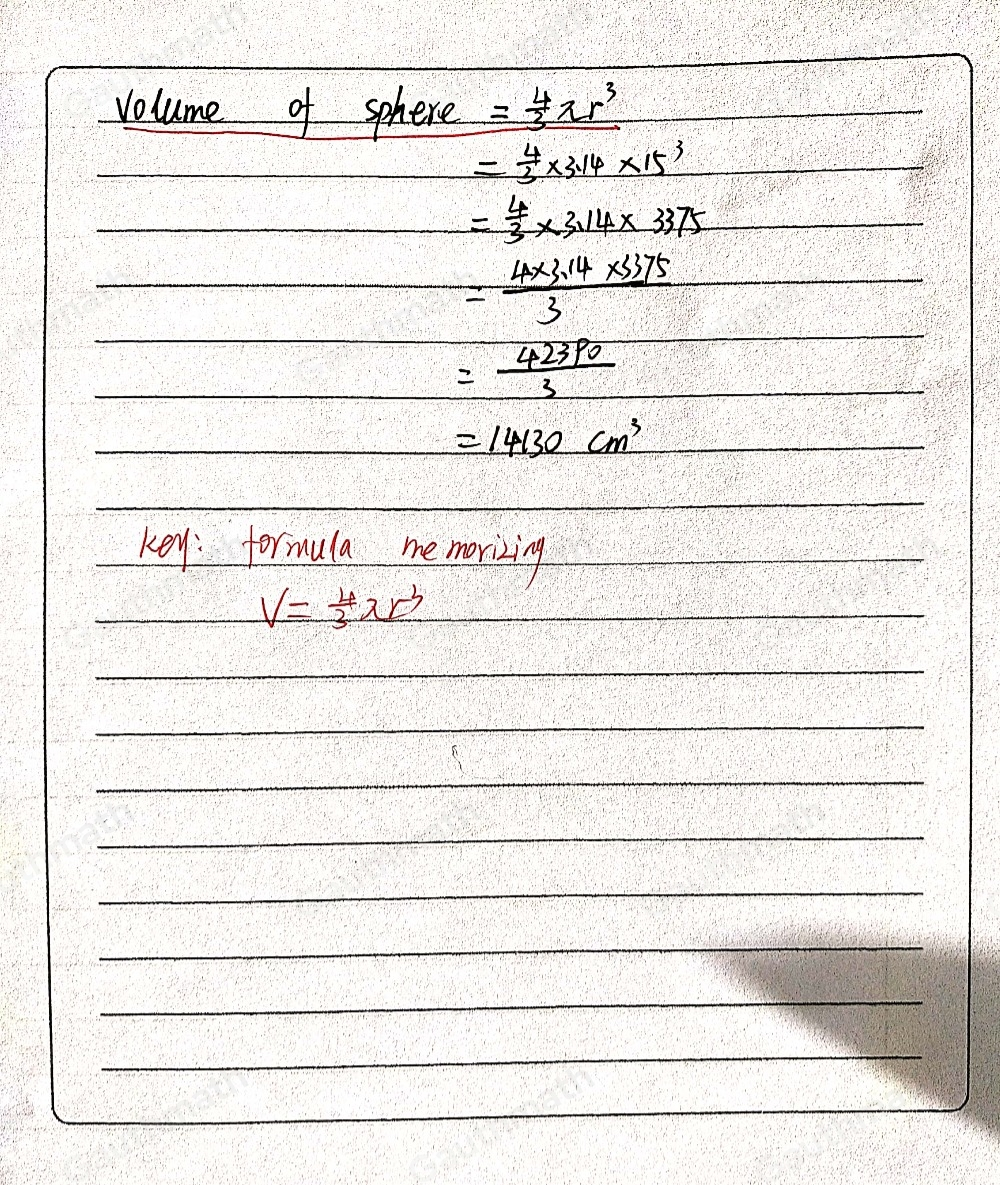 Volume of sphere = 4/3 πr³
= 4/3 × 3.14 × 15³
= 4/3 × 3.14 × 3375
= 4×3.14×3375 / 3
= 42390 / 3
= 14130 cm³
key: formula memorizing
V = 4/3 πr³